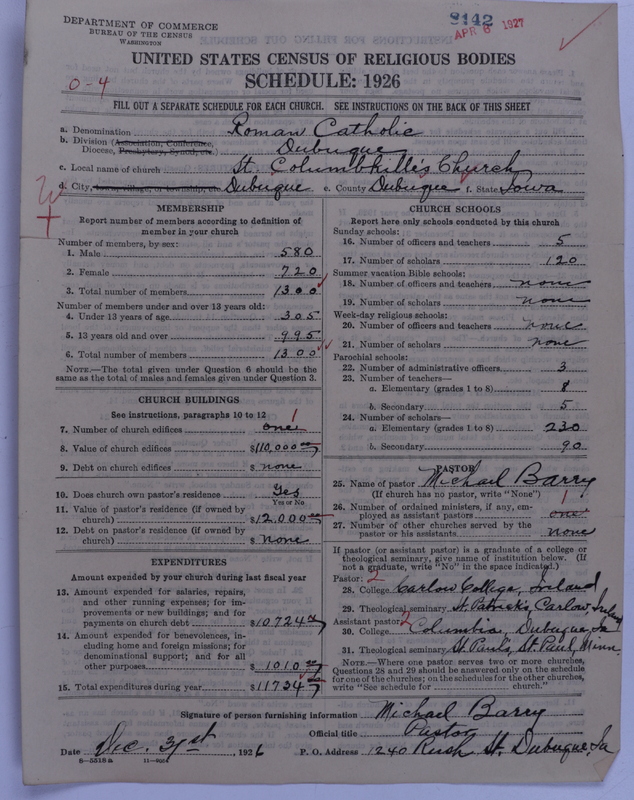 DEPARTMENT OF COMMERCE
BUREAU OF THE CENSUS
WASHINGTON
8142
APR 6 1927
UNITED STATES CENSUS OF RELIGIOUS BODIES
SCHEDULE: 1926
0-4
FILL OUT A SEPARATE SCHEDULE FOR EACH CHURCH. SEE INSTRUCTIONS ON THE BACK OF THIS SHEET
a. Denomination Roman Catholic
b. Division (Association, Conference,
Diocese, Presbytery, Synod, etc.) Dubuque
c. Local name of church St. Columbkille's Church
d. City, town, village, or township, etc. Dubuque e. County Dubuque f. State Iowa
MEMBERSHIP
Report number of members according to definition of
member in your church
Number of members, by sex:
1. Male 580
2. Female 720
3. Total number of members 1300
Number of members under and over 13 years old:
4. Under 13 years of age 305
5. 13 years old and over 995
6. Total number of members 1300
NOTE.—The total given under Question 6 should be
same as the total of males and females given under Question 3.
CHURCH BUILDINGS
See instructions, paragraphs 10 to 12
1
7. Number of church edifices one
8. Value of church edifices $110,000
9. Debt on church edifices $ none
10. Does church own pastor's residence Yes
Yes or No
11. Value of pastor's residence (if owned by
church) $12,000
12. Debt on pastor's residence (if owned by
church) $ none
EXPENDITURES
Amount expended by your church during last fiscal year
13. Amount expended for salaries, repairs,
and other running expenses; for im-
provements or new buildings; and for
payments on church debt $10,724
14. Amount expended for benevolences, in-
cluding home and foreign missions; for
denominational support; and for all
other purposes $1010
15. Total expenditures during year $11734
CHURCH SCHOOLS
Report here only schools conducted by this church
Sunday schools:
16. Number of officers and teachers 5
17. Number of scholars 120
Summer vacation Bible schools:
18. Number of officers and teachers none
19. Number of scholars none
Week-day religious schools:
20. Number of officers and teachers none
21. Number of scholars none
Parochial schools:
22. Number of administrative officers 3
23. Number of teachers—
a. Elementary (grades 1 to 8) 8
b. Secondary 5
24. Number of scholars—
a. Elementary (grades 1 to 8) 230
b. Secondary 90
PASTOR
25. Name of pastor Michael Barry
(If church has no pastor, write "None")
1
26. Number of ordained ministers, if any, em-
ployed as assistant pastors one
27. Number of other churches served by the
pastor or his assistants none
If pastor (or assistant pastor) is a graduate of a college or
theological seminary, give name of institution below. (If
not a graduate, write "No" in the space indicated.)
Pastor: 2
28. College Carlow College, Ireland
29. Theological seminary St. Patrick's, Carlow, Ireland
Assistant pastor: 2
30. College Columbia, Dubuque, Ia
31. Theological seminary St. Paul's, St. Paul, Minn.
NOTE.—Where one pastor serves two or more churches,
Questions 28 and 29 should be answered only on the schedule
for one of the churches; on the schedules for the other churches,
write "See schedule for church."
Signature of person furnishing information Michael Barry
Official title Pastor
Date Dec. 31st, 1926 P. O. Address 1240 Rush St. Dubuque, Ia
8—5518a